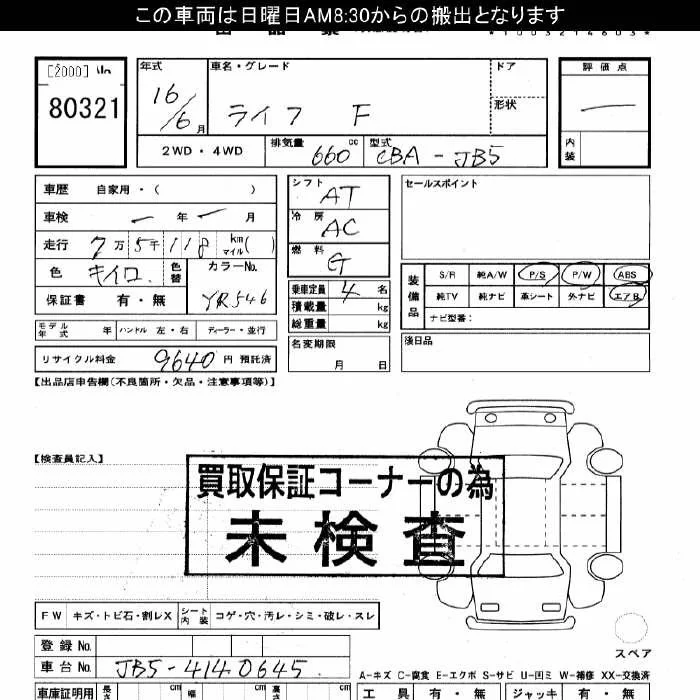 この車両は日曜日AM8:30からの搬出となります
[2000] No
80321
年式 16/6月
車名・グレード ライフ F
ドア
形状
評価点 —
内装
2WD・4WD
排気量 660 cc
型式 CBA-JB5
車歴 自家用・( )
車検 — 年 — 月
走行 7万5千118 km マイル( )
色 キイロ 色替 カラーNo. YR546
保証書 有・無
シフト AT
冷房 AC
燃料 G
乗車定員 4 名
積載量 kg
総重量 kg
セールスポイント
装備品 S/R 純A/W P/S P/W ABS
純TV 純ナビ 革シート 外ナビ エアB
ナビ型番:
モデル年式 年 ハンドル 左・右 ディーラー・並行
リサイクル料金 9640 円 預託済
名変期限 月 日
後日品
【出品店申告欄(不良箇所・欠品・注意事項等)】
【検査員記入】
買取保証コーナーの為
未検査
FW キズ・トビ石・割レX シート内装 コゲ・穴・汚レ・シミ・破レ・スレ
登録No.
車台No. JB5-4140645
スペア
A-キズ C-腐食 E-エクボ S-サビ U-凹ミ W-補修 XX-交換済
車庫証明用 長さ cm 幅 cm 高さ cm
工具 有・無 ジャッキ 有・無